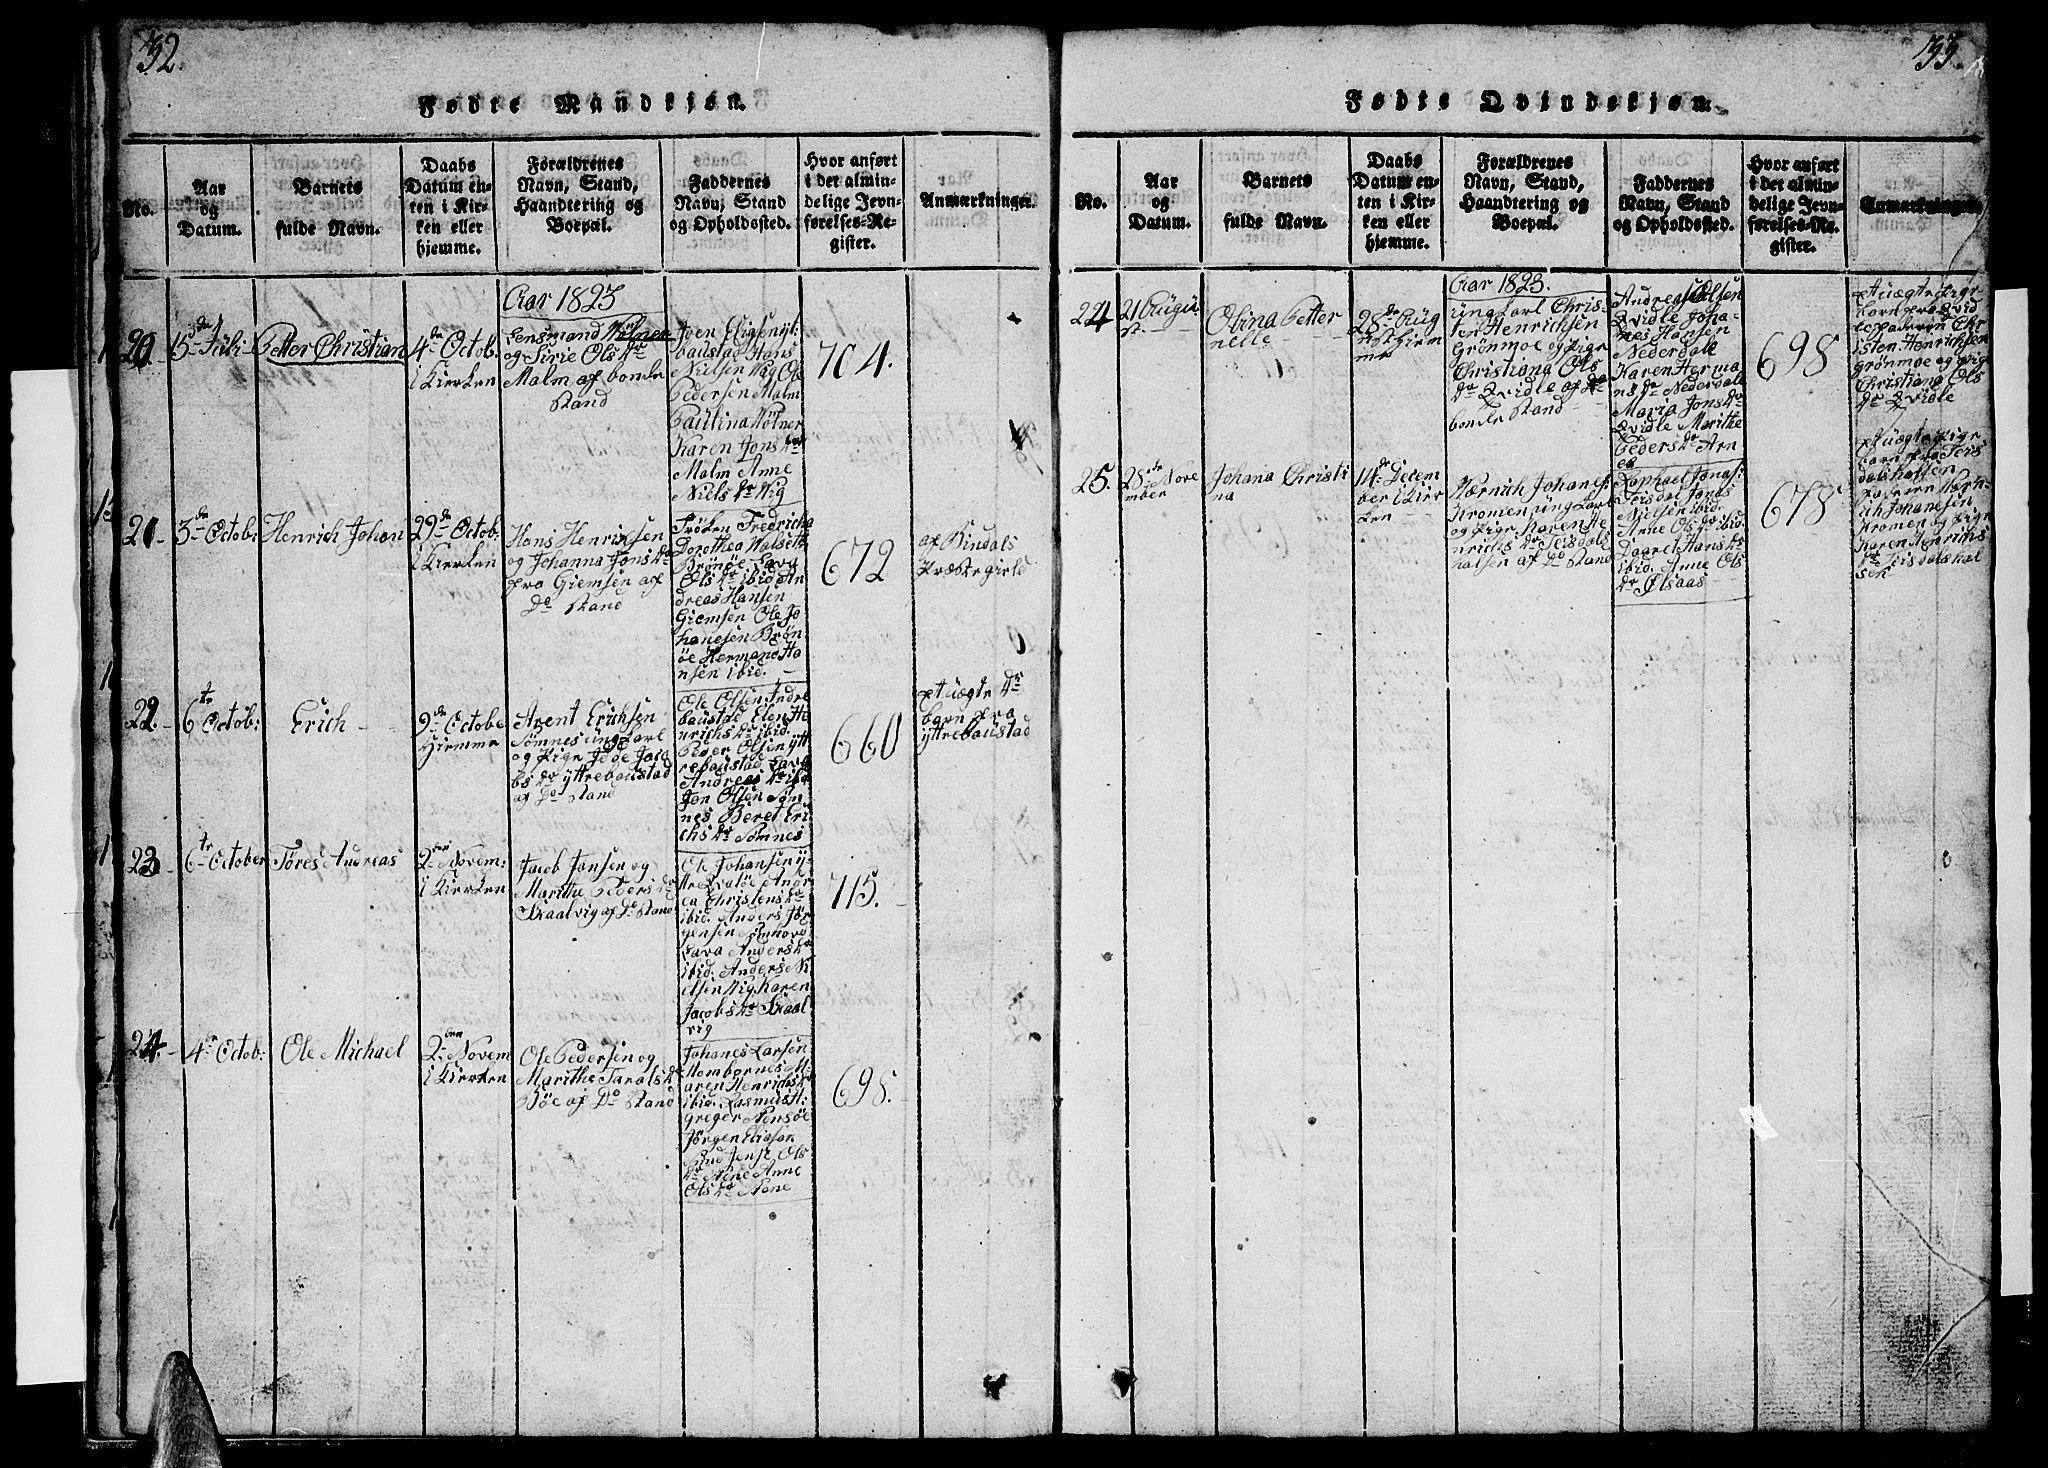 32.
Fødte Mandkjøn.
No.
Aar
og
Datum.
Barnets
fulde Navn.
Daabs
Datum en-
ten i Kir-
ken eller
hjemme.
Forældrenes
Navn, Stand,
Haandtering og
Boepæl.
Faddernes
Navn, Stand
og Opholdsted.
Hvor anført
i det almin-
delige Jevn-
førelses-Re-
gister.
Anmærkninger.
Aar 1823
20
15de Juli
Petter Christian
4de Octob.
i Kierken
Lensmand Wølner
og Sirie Olsdr
Malm af bonde
Stand
Nielsen Vig Ole
Pedersen Malm
Paulina Wølner
Karen Jonsdr
Malm Anne
Nielsdr Vig
704.
21
3de Octob:
Henrich Johan
29de Octob.
i Kierken
Hans Henrichsen
og Johanna Jonsdr
fra Giemsen af
Do Stand
Frøken Fredricha
Dorothea
Brønøe Sara
Olsdr ibid An
dreas Hansen
Giemsen Ole Jo
hanesen Brøn
øe Hermand Ha
nsen ibid.
672
af Bindals
Præstegield
22.
6te Octob:
Erich
9de Octobe
Hiemme
Arent Erichsen
Sømnes ungkarl
og Pige Jaco
bsdr Yttrebaustad
af Do Stand
Ole Olsen Indre
baustad Elen He
nrichsdr ibid.
Peder Olsen Ytt
rebaustad Sara
Andreasdr ibid
Jon Olsen Søm
nes Beret Eri
chsdr Sømnes
660
Uægte
barn fra
Yttrebaustad
23
6te October
Tøres Andreas
2den Novem:
i Kierken
Jacob Jonsen og
Marithe Pedersdr
Skaalvig af Do Stand
Ole Johansen y-
tre Qvaløe Andr
ea Christensdr
ibid. Anders Jør
gensen
Sara Andersdr
ibid. Anders Ni
elsen Vig Karen
Jacobsdr Skaal
vig
715.
24.
4de Octob:
Ole Michael
2den Novem
i Kierken
Ole Pedersen og
Marithe Taralsdr
Bøe af Do Stand
Johanes Larsen
Mombornes M-
aren Henrichsdr
ibid. Rasmus H:
greger
Jørgen Eliasen
Sund Jense Ols
dr Anne
Olsdr
698.
33.
Fødte Qvindekjøn.
No.
Aar
og
Datum.
Barnets
fulde Navn.
Daabs
Datum en-
ten i Kir-
ken eller
hjemme.
Forældrenes
Navn, Stand,
Haandtering og
Boepæl.
Faddernes
Navn, Stand
og Opholdsted.
Hvor anført
i det almin-
delige Jevn-
førelses-Re-
gister.
Anmærkninger.
Aar 1823.
24
21 Augu
st.
Olina Petter
nelle
28de Aug
ust hiem
me
ungkarl Chris-
ten Henrichsen
Grønmoe og Pige
Christiana Ols
dr Qvidle af
bonde Stand
Andreas Olsen
Qvidle Joha-
nes Hansen
Nederdale
Karen Herma
nsdr Nederdale
Maria Jonsdr
Qvidle Marithe
Pedersdr Arn
es
698
Uægte Pige
barn fra Qvid
le Faderen Chr
isten Henrichsen
Grønmoe og Pige
Christiana Ols
dr Qvidle
25.
28de Nove
mber
Johana Christi
na
14de Decem
ber i Kier
ken
Johanes:
Kromen ungkarl
og Pige Karen He
nrichsdr Teisdals
halsen af Do Stand
Raphael Jonas:
Teisdal Jonas
Nielsen ibid.
Arne Olsdr ibid.
Hansdr
ibid. Anne Ols
dr Olsaas
678
Uægte Pige
barn fra Teis
dalshalsen
Faderen
Johanesen
Kromen og Pige
Karen Henrichs
dr Teisdalshal
sen